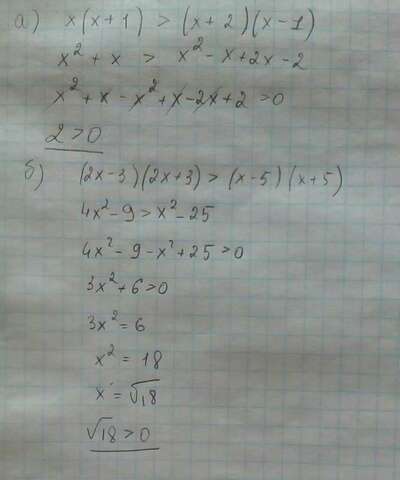 а) x(x+1) > (x+2)(x-1)
x² + x > x² - x + 2x - 2
x² + x - x² + x - 2x + 2 > 0
2 > 0
б) (2x-3)(2x+3) > (x-5)(x+5)
4x² - 9 > x² - 25
4x² - 9 - x² + 25 > 0
3x² + 6 > 0
3x² = 6
x² = 18
x = √18
√18 > 0